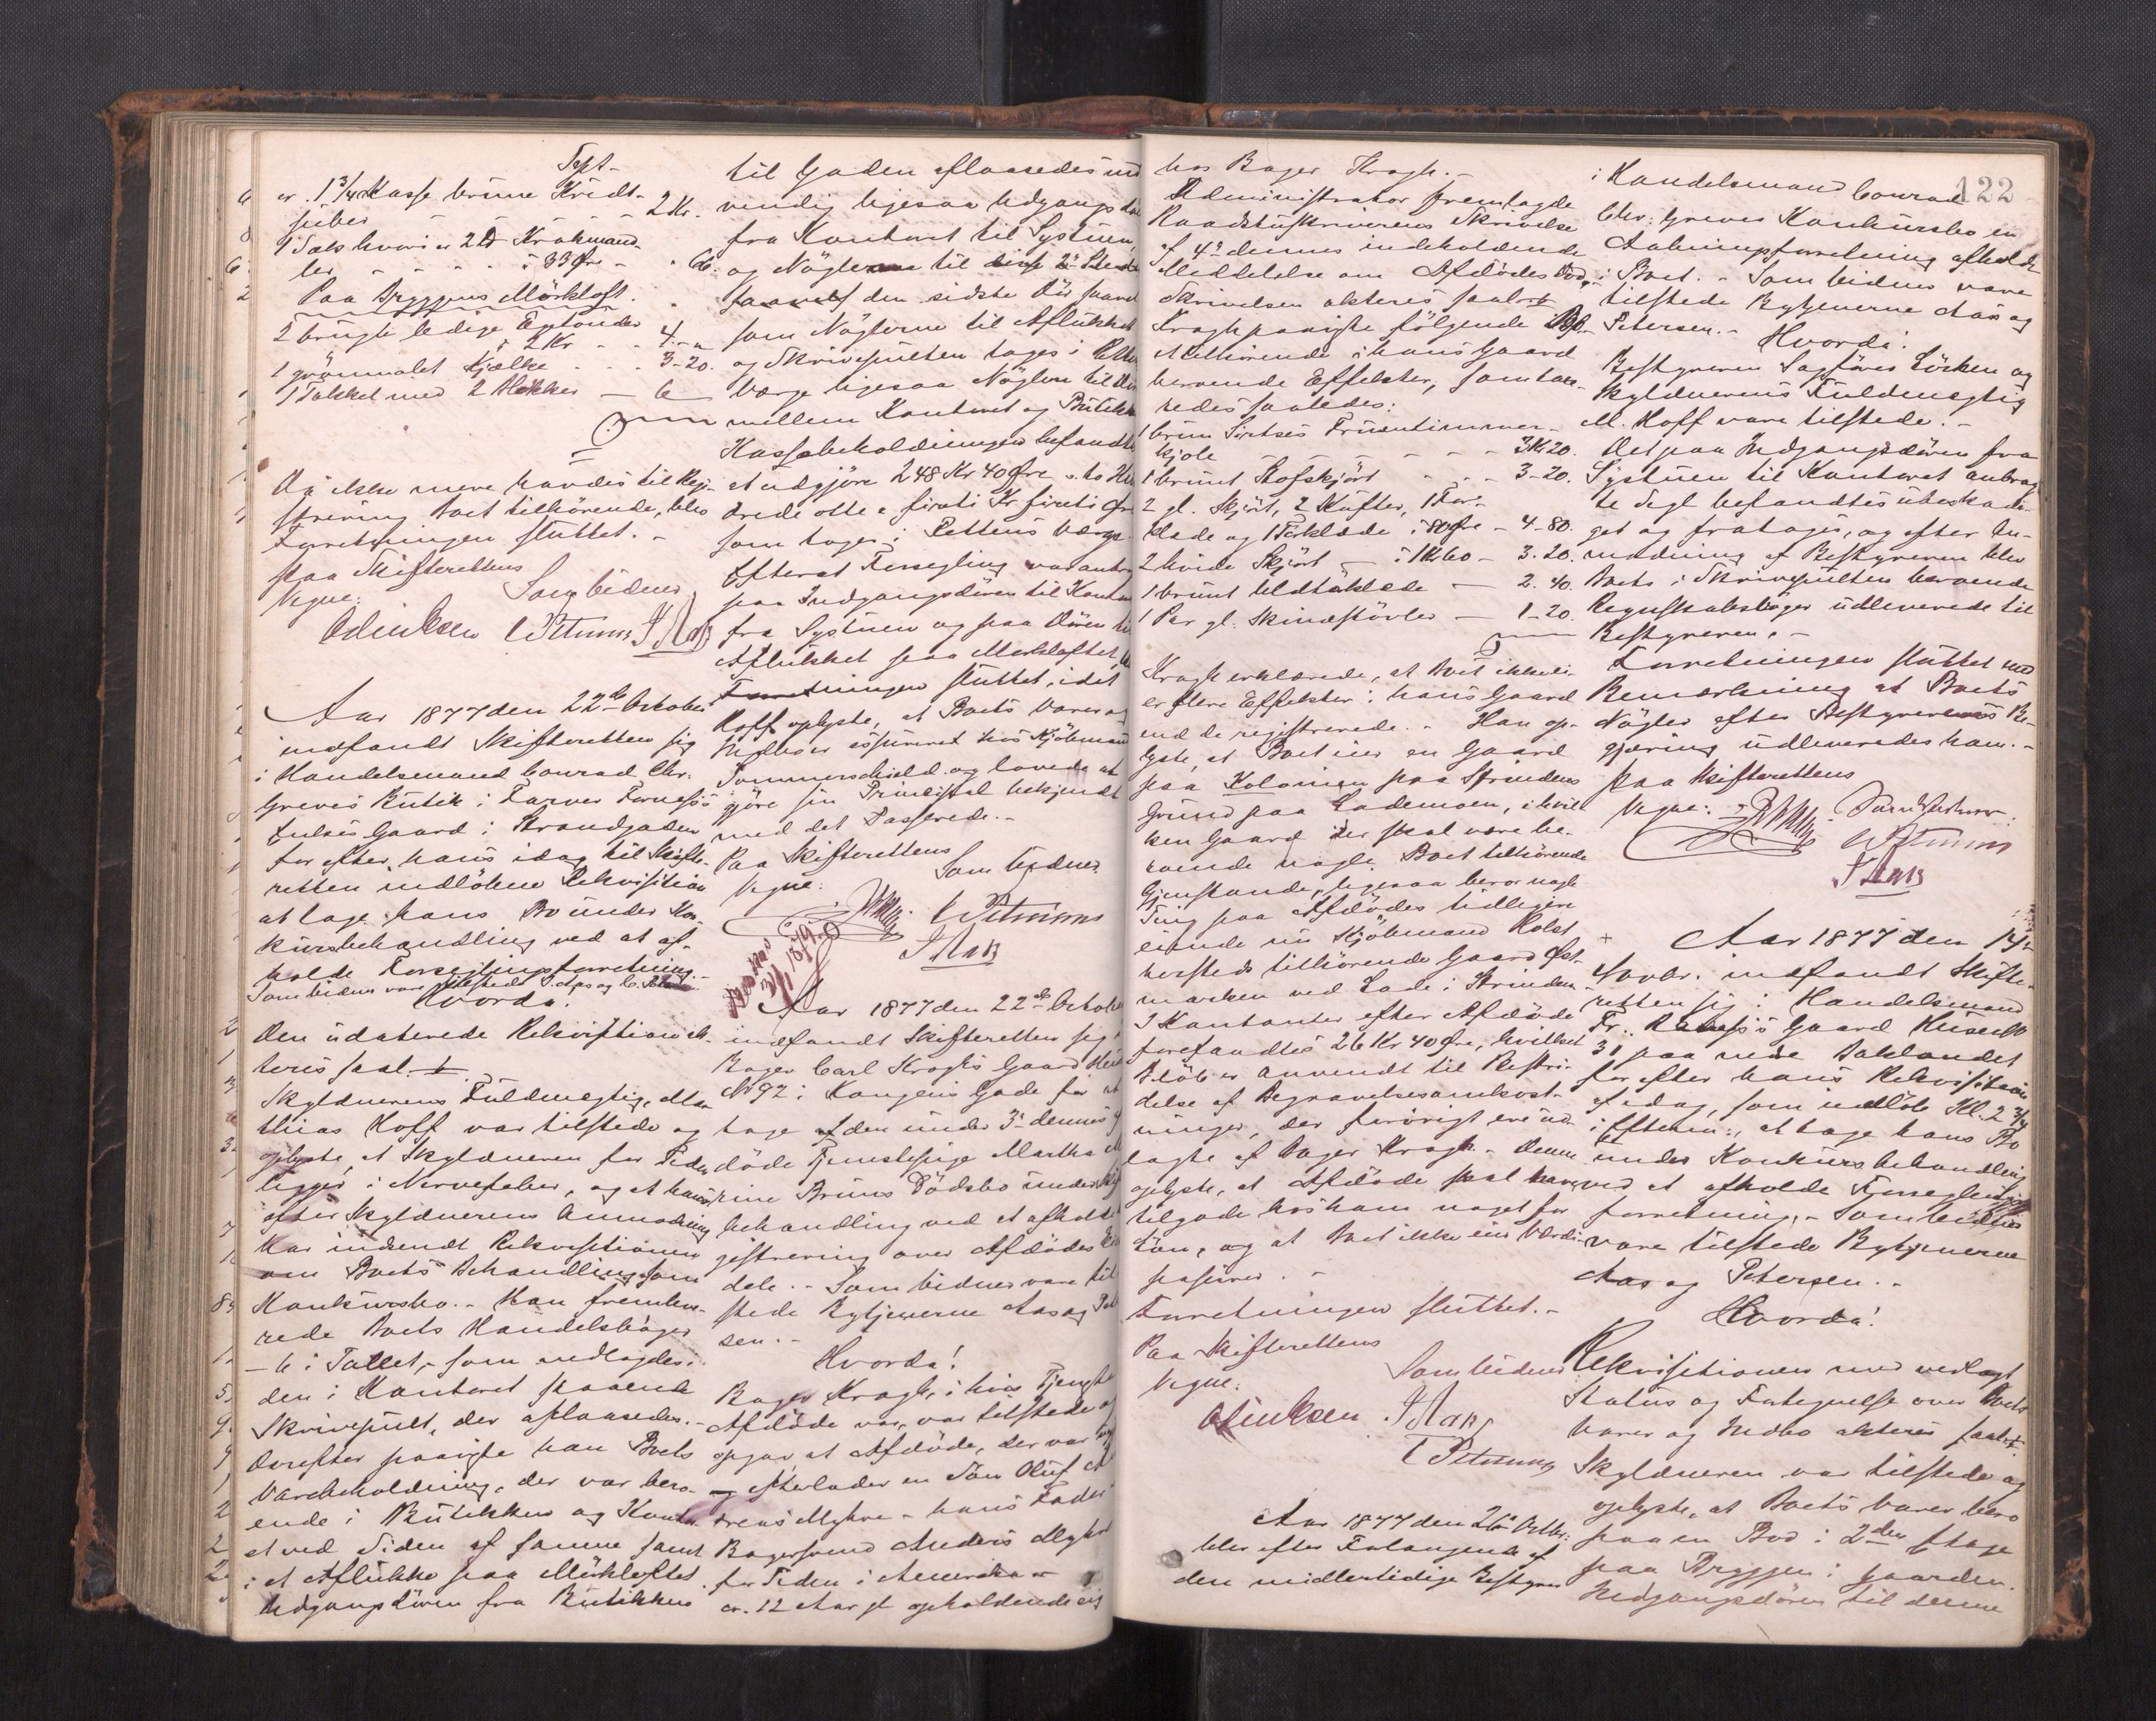 Tspt-
cr. 1 3/4 Kasse brune Kridt-
piber - - - - - 2 Kr.
1 Sæk hvori cr 2 ℔ Krakmand
ler - - - - à 33 Øre - " 66.
Paa Bryggens Mörkloft.
2 brugte ledige Øltønder
à 2 Kr - - 4 - "
1 grönmalet Kjælke - - - 3-20.
1 Takkel med 2 Blokker — 6
Da ikke mere havdes til Regi-
strering Boet tilhörende, blev
Forretningen sluttet. -
Paa Skifterettens
Vegne: Som Vidner
C Petersen J Aas
Aar 1877 den 22de October
indfandt Skifteretten sig
i Handelsmand Conrad Chr.
Greves Butik i Farver Fornæss's
Enkes Gaard i Strandgaden
for efter hans idag til Skifte-
retten indlöbne Rekvisition
at tage hans Bo under Kon-
kursbehandling ved at af-
holde Forseglingsforretning. -
Som Vidner vare tilstede J. Aas og C. Petersen
Hvorda!
Den udaterede Rekvisition ak-
teres saal. +
Skyldnerens Fuldmægtig, Mat-
thias Hoff var tilstede og
oplyste, at Skyldneren for Tiden
ligger i Nervefeber, og at han
efter Skyldnerens Anmodning
har indsendt Rekvisitionen
om Boets Behandling som
Konkursbo. - Han fremlev-
rede Boets Handelsböger
- 6 i Tallet, - som nedlagdes i
den i Kontoret staaende
Skrivepult, der aflaasedes. -
Derefter paaviste han Boets
Varebeholdning, der var bero-
ende i Butikken og Konto-
et ved Siden af samme samt
i et Aflukke paa Mörkloftet.
Udgangsdören fra Butikken
til Gaden aflaasedes ind
vendig ligesaa Udgangsdör
fra Kontoret til Systuen,
og Nöglerne til disse 2de
den sidste Dör saavel
som Nöglerne til Aflukket
og Skrivepulten toges i Rettens
Værge ligesaa Nöglen til Dör
mellem Kontoret og Butikken
Kassebeholdningen befandtes
at udgjöre 248 Kr 40 Øre - to Hun
drede otte & firoti Kr firoti Øre
som toges i Rettens Værge.
Efterat Forsegling var anbra
paa Indgangsdören til Kontor
fra Systuen og paa Dören til
Aflukket paa Mörkloftet, blev
Forretningen sluttet, idet
Hoff oplyste, at Boets Varer og
Indbo er assureret hos Kjöbmand
Sommerschield og lovede at
gjöre sin Principal bekjendt
med det Passerede. -
Paa Skifterettens
Vegne: Som Vidner
C Petersen
J Aas
31/1 1879.
Aar 1877 den 22de October
indfandt Skifteretten sig i
Bager Carl Kroghs Gaard
No 92 i Kongens Gade for at
tage af den under 3die dennes af-
döde Tjenestepige Martha
rine Bruns Dödsbo under Skif
behandling ved at afholde
gistrering over Afdödes
dele. - Som Vidner vare til
stede Bytjenerne Aas og Pet
sen. -
Hvorda!
Bager Krogh, i hvis Tjeneste
Afdöde var, var tilstede og
opgav, at Afdöde, der var
og efterlader en Sön Oluf
dreas Myhre - hans Fader
Bagersvend Anders Myhre
for Tiden i Amerika -
cr. 12 Aar gl opholdende sig
122
hos Bager Krogh. -
Administrator fremlagde
Raadstuskriverens Skrivelse
af 4de dennes indeholdende
Meddelelse om Afdödes Död. -
Skrivelsen akteres saal. +
Krogh paaviste fölgende Boet
tilhörende i hans Gaard
beroende Effekter, som taxe-
redes saaledes:
1 brun Sirtses Fruentimmer-
kjole - - - - - 3 Kr 20.
1 brunt Stofskjört - - - 3-20.
2 gl. Skjört, 2 Kufter, 1 For-
klæde og 1 Törklæde à 80 Øre - 4-80.
2 hvide Skjört - à 1 Kr 60 - 3.20.
1 brunt Uldtöklæde - 2.40.
1 Par gl. Skindstövler - 1-20.
Krogh erklærede, at Boet ikke ei-
er flere Effekter i hans Gaard
end de registrerede. - Han op-
lyste, at Boet eier en Gaard
paa Kolonien paa Strindens
Grund paa Lademoen, i hvil
ken Gaard der skal være be-
roende nogle Boet tilhörende
Gjenstande, ligesaa beror nogle
Ting paa Afdödes tidligere
eiende nu Kjöbmand Rolst
hersteds tilhörende Gaard Øst-
marken ved Lade i Strinden. -
I Kontanter efter Afdöde
forefandtes 26 Kr 40 Øre, hvilket
Belöb er anvendt til Bestri-
delse af Begravelsesomkost-
ninger, der forövrigt ere ud-
lagte af Bager Krogh. - Denne
oplyste, at Afdöde skal have
tilgode hos ham noget for
Lön, og at Boet ikke eier Værdi-
papirer. -
Forretningen sluttet. -
Paa Skifterettens
Vegne: Som Vidner
J Aas
C Petersen
Aar 1877 den 26de Octbr:
blev efter Forlangende af
den midlertidige Bestyrer
i Handelsmand Conrad
Chr: Greves Konkursbo en
Aabningsforretning afholdt
i Boet. - Som Vidner vare
tilstede Bytjenerne Aas og
Petersen. -
Hvorda!
Bestyreren Sagförer Lörken og
Skyldnerens Fuldmægtig
M. Hoff vare tilstede. -
Det paa Indgangsdören fra
Systuen til Kontoret anbrag
te Segl befandtes ubeskadi-
get og fratoges, og efter An-
modning af Bestyreren blev
Boets i Skrivepulten beroende
Regnskabsböger udleverede til
Bestyreren. -
Forretningen sluttet med
Bemærkning at Boets
Nögler efter Bestyrerens Be-
gjæring udleveredes ham. -
Paa Skifterettens
Vegne: Som Vidner.
C Petersen
J Aas
+ Aar 1877 den 14de
Novbr. indfandt Skifte-
retten sig i Handelsmand
Fr. Gaard Huse No
31 paa nede Baklandet
for efter hans Rekvisition
af idag, som indlöb Kl. 2 3/4
i Efterm:, at tage hans Bo
under Konkursbehandling
ved at afholde Forseglings
forretning. - Som Vidner
vare tilstede Bytjenerne
Aas og Petersen. -
Hvorda!
Rekvisitionen med vedlagt
Status og Fortegnelse over Boets
Varer og Indbo akteres saal. +.
Skyldneren var tilstede og
oplyste, at Boets Varer bero
paa en Bod i 2den Etage
paa Bryggen i Gaarden.
Indgangsdören til denne